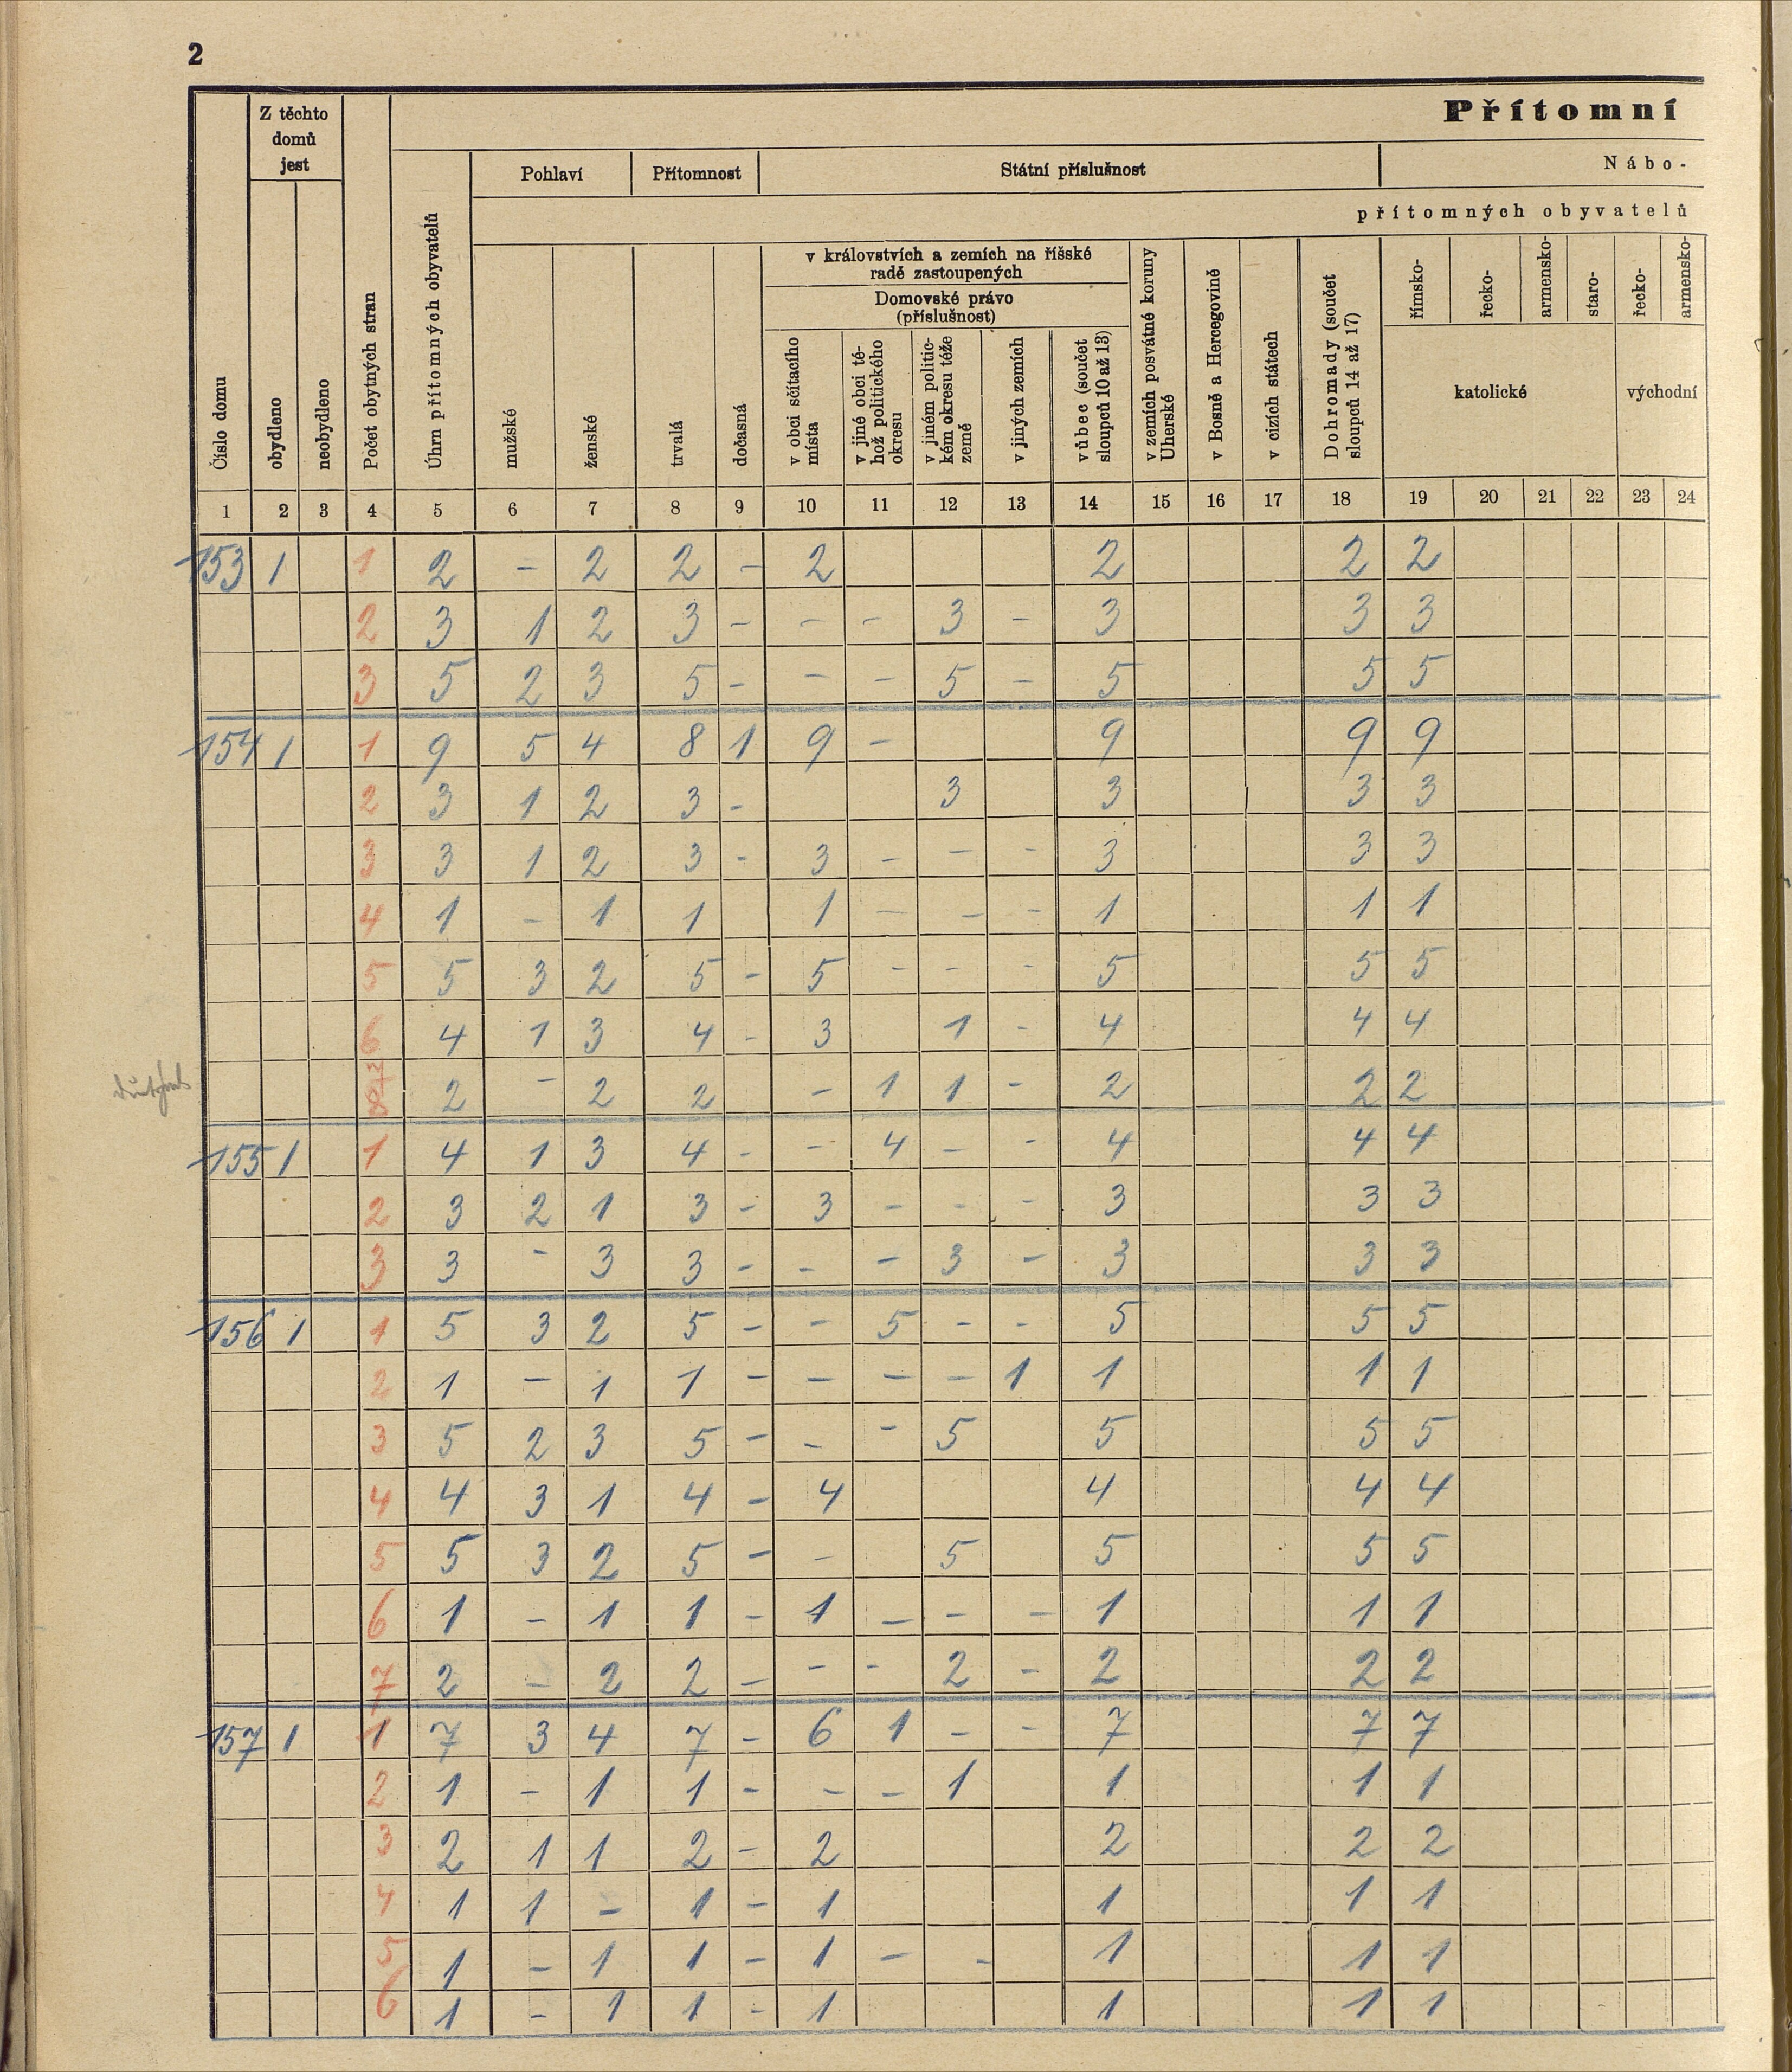 2
Přítomní
Z těchto domů jest
Pohlaví Přítomnost Státní příslušnost Nábo-
přítomných obyvatelů
v královstvích a zemích na říšské
radě zastoupených
Domovské právo
(příslušnost)
Číslo domu
obydleno
neobydleno
Počet obytných stran
Úhrn přítomných obyvatelů
mužské
ženské
trvalá
dočasná
v obci sčítacího místa
v jiné obci té-hož politického okresu
v jiném politic-kém okresu téže země
v jiných zemích
vůbec (součet sloupců 10 až 13)
v zemích posvátné koruny Uherské
v Bosně a Hercegovině
v cizích státech
Dohromady (součet sloupců 14 až 17)
římsko-
řecko-
armensko-
staro-
řecko-
armensko-
katolické východní
1 2 3 4 5 6 7 8 9 10 11 12 13 14 15 16 17 18 19 20 21 22 23 24
153 1 1 2 - 2 2 - 2 2 2 2
2 3 1 2 3 - - - 3 - 3 3 3
3 5 2 3 5 - - - 5 - 5 5 5
154 1 1 9 5 4 8 1 9 - 9 9 9
2 3 1 2 3 - 3 3 3 3
3 3 1 2 3 - 3 - - - 3 3 3
4 1 - 1 1 1 - - - 1 1 1
5 5 3 2 5 - 5 - - - 5 5 5
6 4 1 3 4 - 3 1 - 4 4 4
2 - 2 2 - 1 1 - 2 2 2
155 1 1 4 1 3 4 - - 4 - - 4 4 4
2 3 2 1 3 - 3 - - - 3 3 3
3 3 - 3 3 - - - 3 - 3 3 3
156 1 1 5 3 2 5 - - 5 - - 5 5 5
2 1 - 1 1 - - - - 1 1 1 1
3 5 2 3 5 - - - 5 5 5 5
4 4 3 1 4 - 4 4 4 4
5 5 3 2 5 - - 5 5 5 5
6 1 - 1 1 - 1 - - - 1 1 1
7 2 - 2 2 - - - 2 - 2 2 2
157 1 1 7 3 4 7 - 6 1 - - 7 7 7
2 1 - 1 1 - - - 1 1 1 1
3 2 1 1 2 - 2 2 2 2
4 1 1 - 1 - 1 1 1 1
5 1 - 1 1 - 1 - - 1 1 1
6 1 - 1 1 - 1 1 1 1